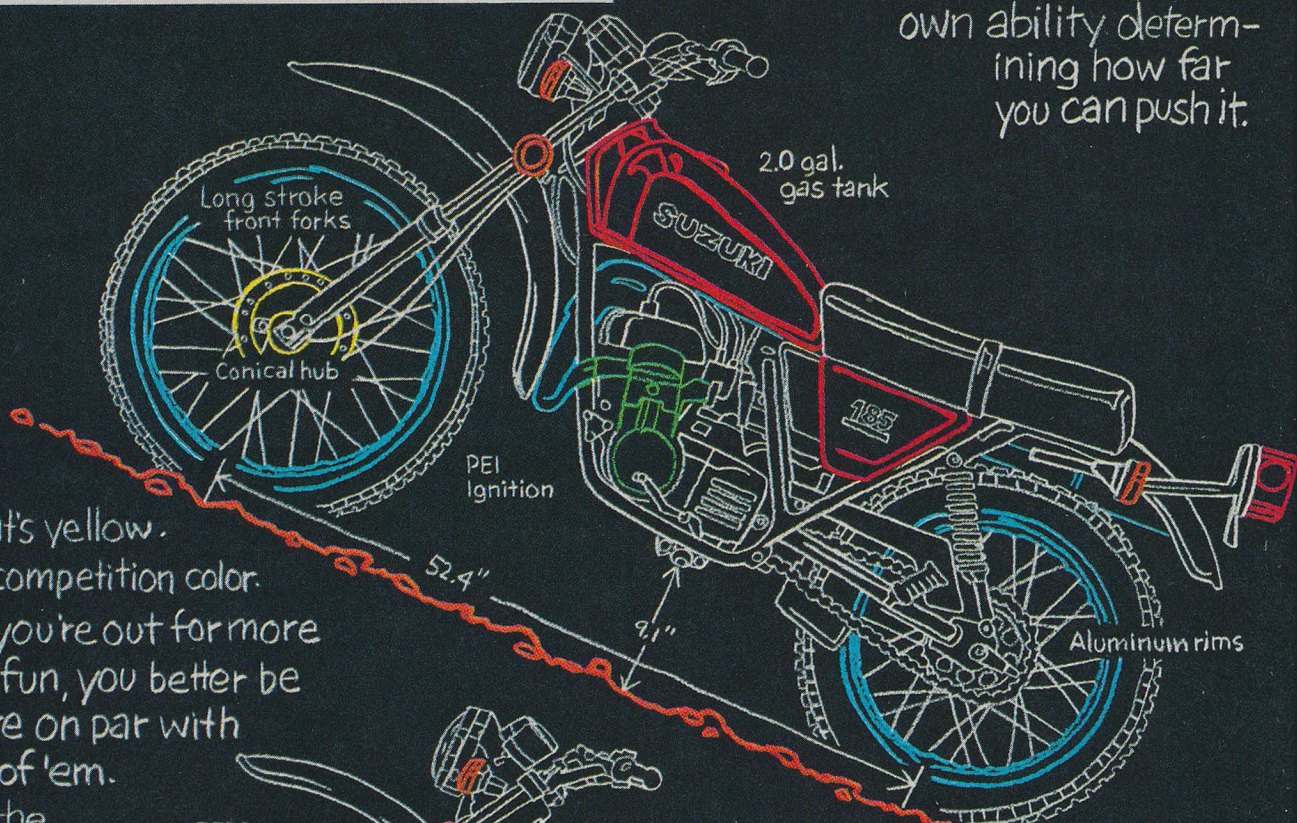 own ability determ-
ining how far
you can push it.
2.0 gal.
gas tank
Long stroke
front forks
SUZUKI
Conical hub
185
PEI
Ignition
52.4"
9.1"
Aluminum rims
t's yellow.
competition color.
you're out for more
fun, you better be
re on par with
of 'em.
the